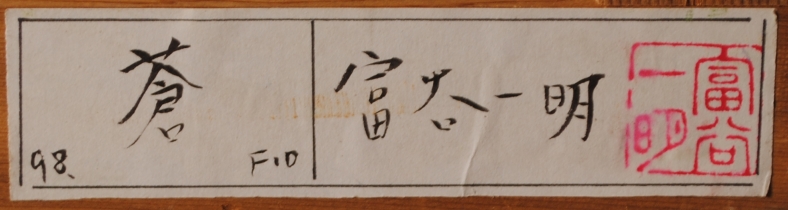 蒼
98. F10
富谷一明
富谷
一明